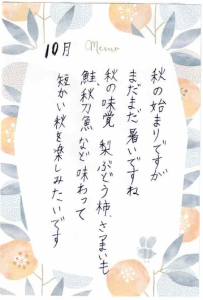 10月
Memo
秋の始まりですが
まだまだ暑いですね
秋の味覚 梨、ぶどう、柿、さつまいも
鮭、秋刀魚など味わって
短かい秋を楽しみたいです